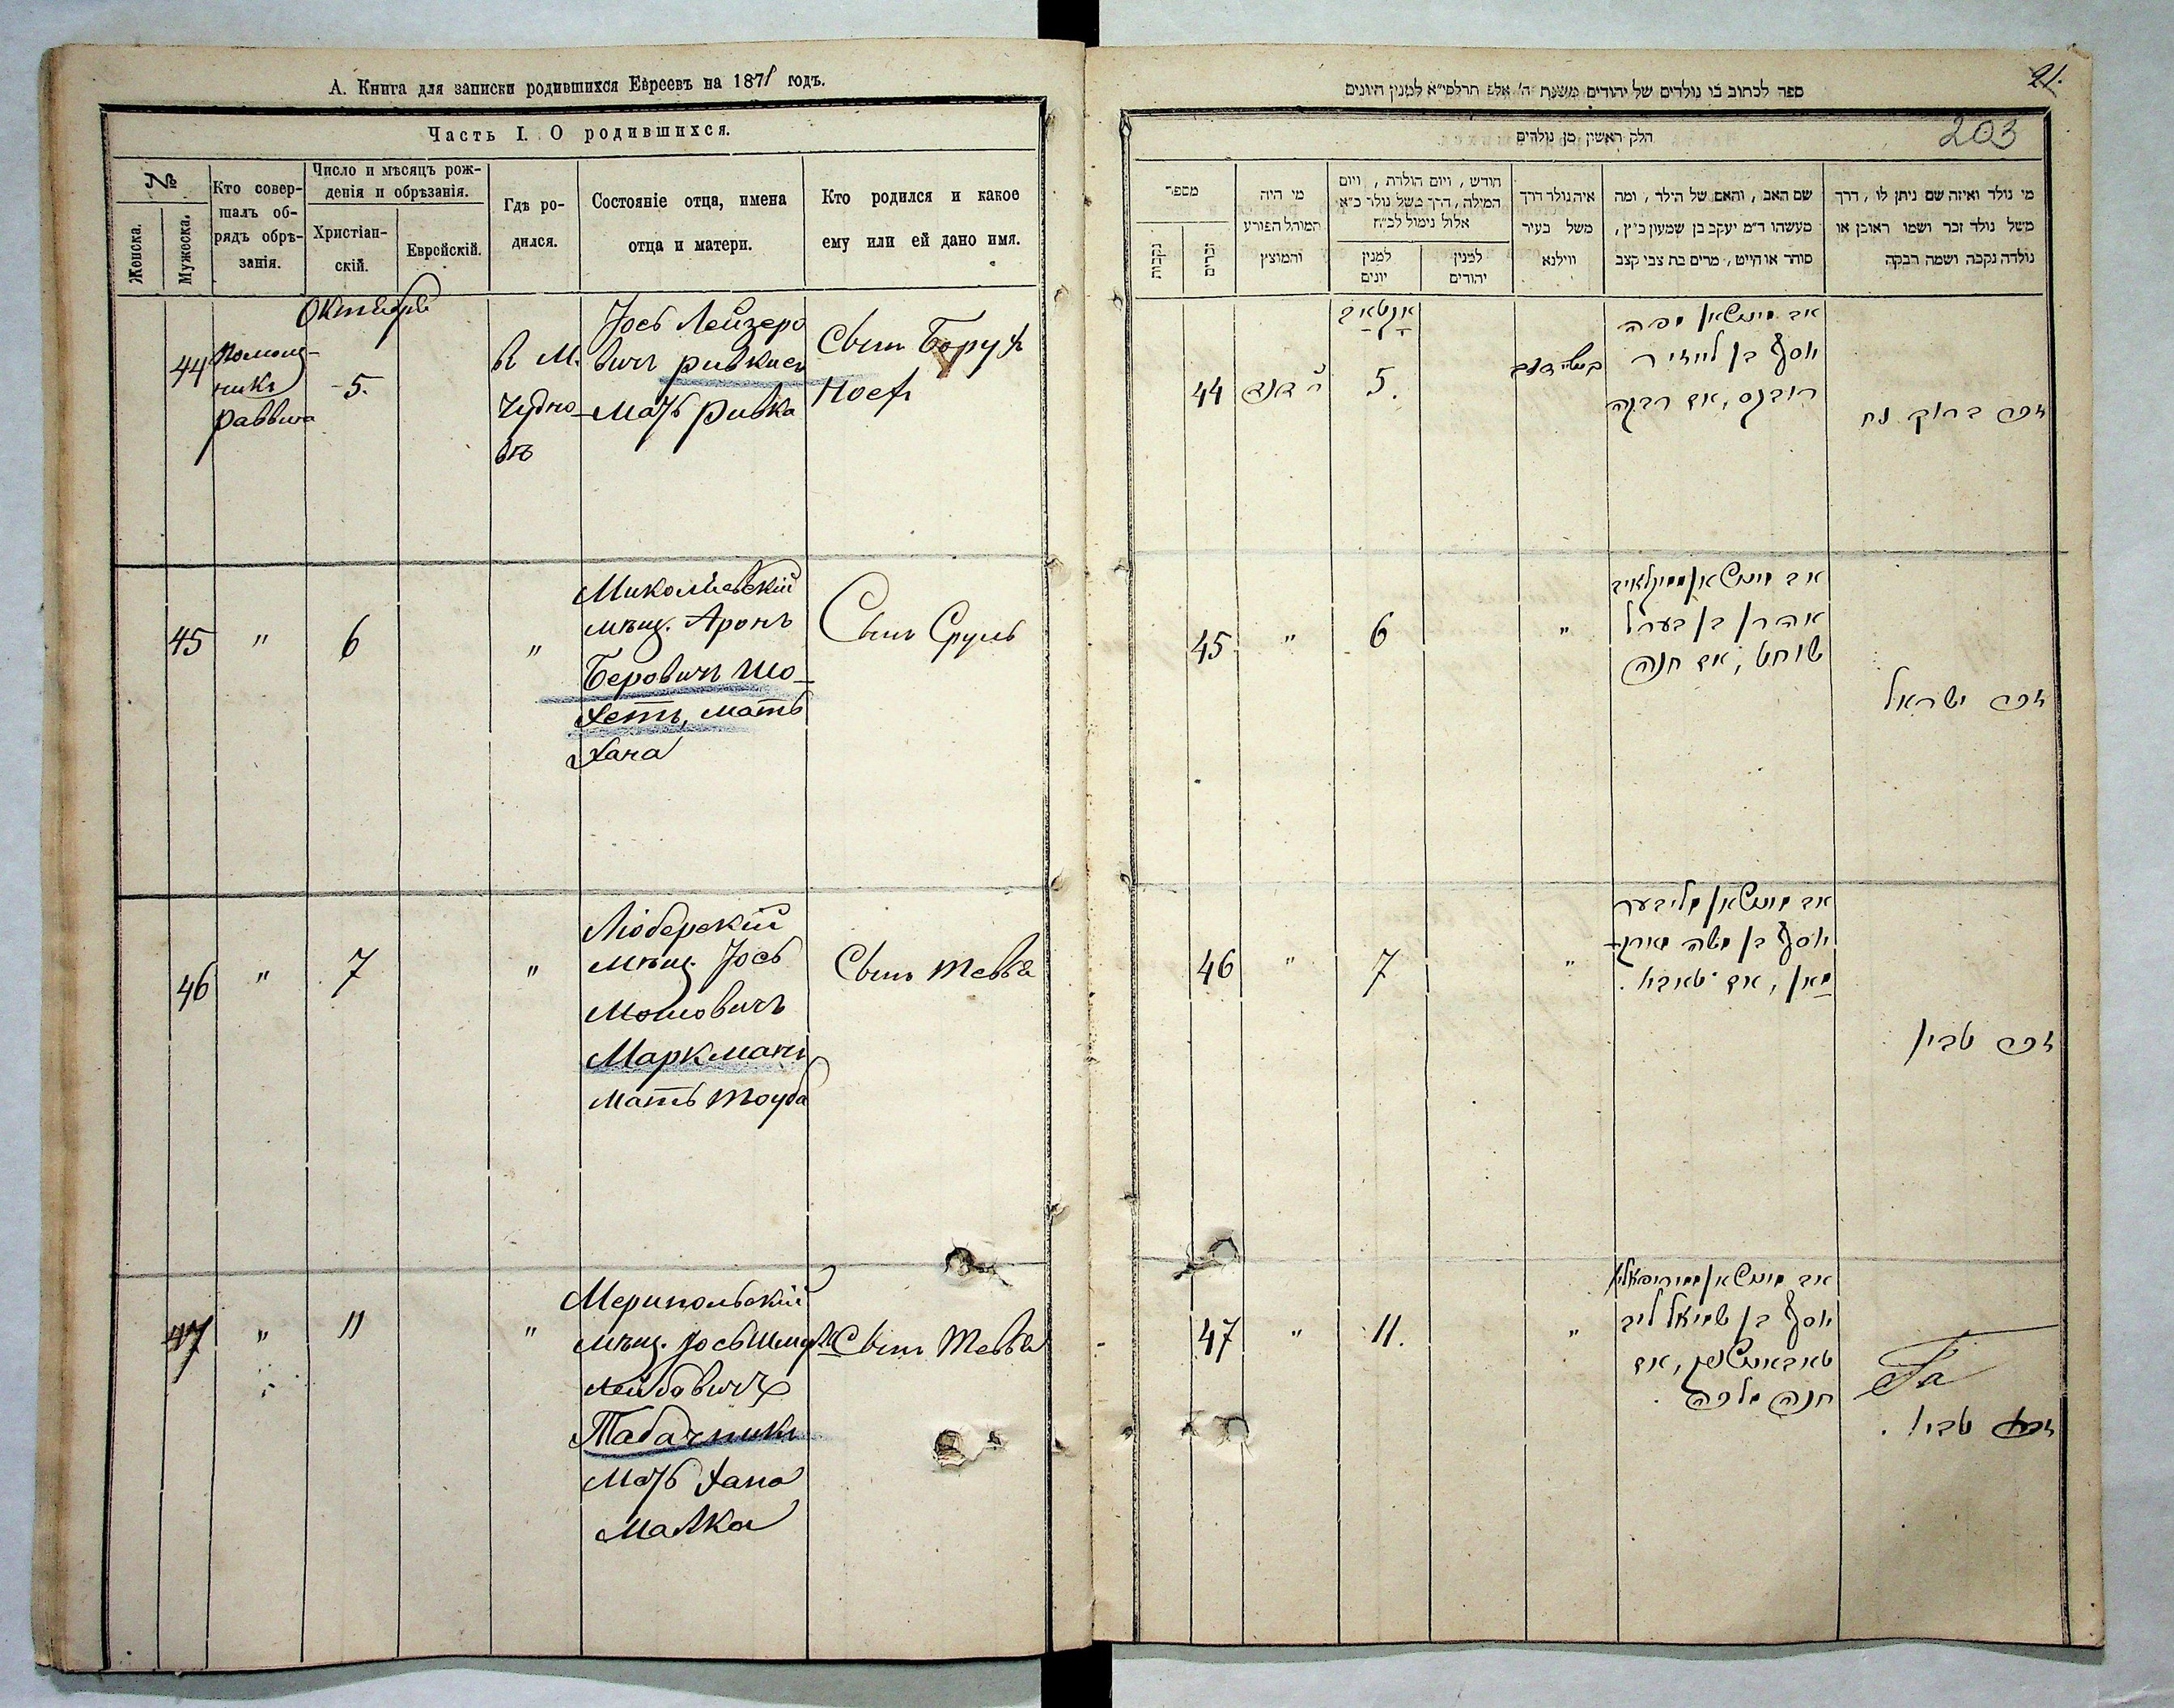 А. Книга для записки родившихся Евреевъ на 1871 годъ.
Часть I. О родившихся.
№
Женска.
Мужеска.
Кто совер-
шалъ об-
рядъ обрѣ-
занія.
Число и мѣсяцъ рож-
денія и обрѣзанія.
Христіан-
скій.
Еврейскій.
Гдѣ ро-
дился.
Состояніе отца, имена
отца и матери.
Кто родился и какое
ему или ей дано имя.
Октября
44
Помощ-
никъ
раввина
5.
в М.
Чудно-
вѣ
Іось Лейзеро
вичъ Ривкисъ
Мать Ривка
Сынъ Борух
Ноех
45
"
6
"
Миколаевскій
мѣщ. Аронъ
Беровичъ Шо-
хетъ, мать
Хана
Сынъ Сруль
46
"
7
"
Люберскій
мѣщ. Іось
Мошовичъ
Маркманъ
мать Тоуба
Сынъ Тевье
47
"
11
"
Меripольскій
мѣщ. Іось Шмуль
Лейбовичъ
Табачникъ
Мать Хана
Малка
Сынъ Тевье
21.
203
ספר לכתוב בו נולדים של יהודים משנת ה' אלפ תרלפי״א למנין היונים
חלק ראשין מן נולדים
מספר
נקבות
זכרים
מי היה
המוהל הפורע
והמוצץ
חודש, ויום הולדת, ויום
המילה, דרך משל נולד כ״א
אלול נימול לכ״ח
למנין
יונים
למנין
יהודים
איה נולד דרך
משל בעיר
ווילנא
שם האב, והאם של הילד, ומה
מעשהו ד״מ יעקב בן שמעון כ״ץ,
סוחר או חייט, מרים בת צבי קצב
מי נולד ואיזה שם ניתן לו, דרך
משל נולד זכר ושמו ראובן או
נולדה נקבה ושמה רבקה
44
5.
יוסף בן לייזיר
זכר ברוך נח
45
"
6
"
אהרן בן בערל
שוחט, אם חנה
זכר ישראל
46
"
7
"
יוסף בן משה מארק-
מאן, אם טאבא.
זכר טביו
47
"
11.
"
יוסף בן שמואל ליב
חנה מלכה
זכר טביו.